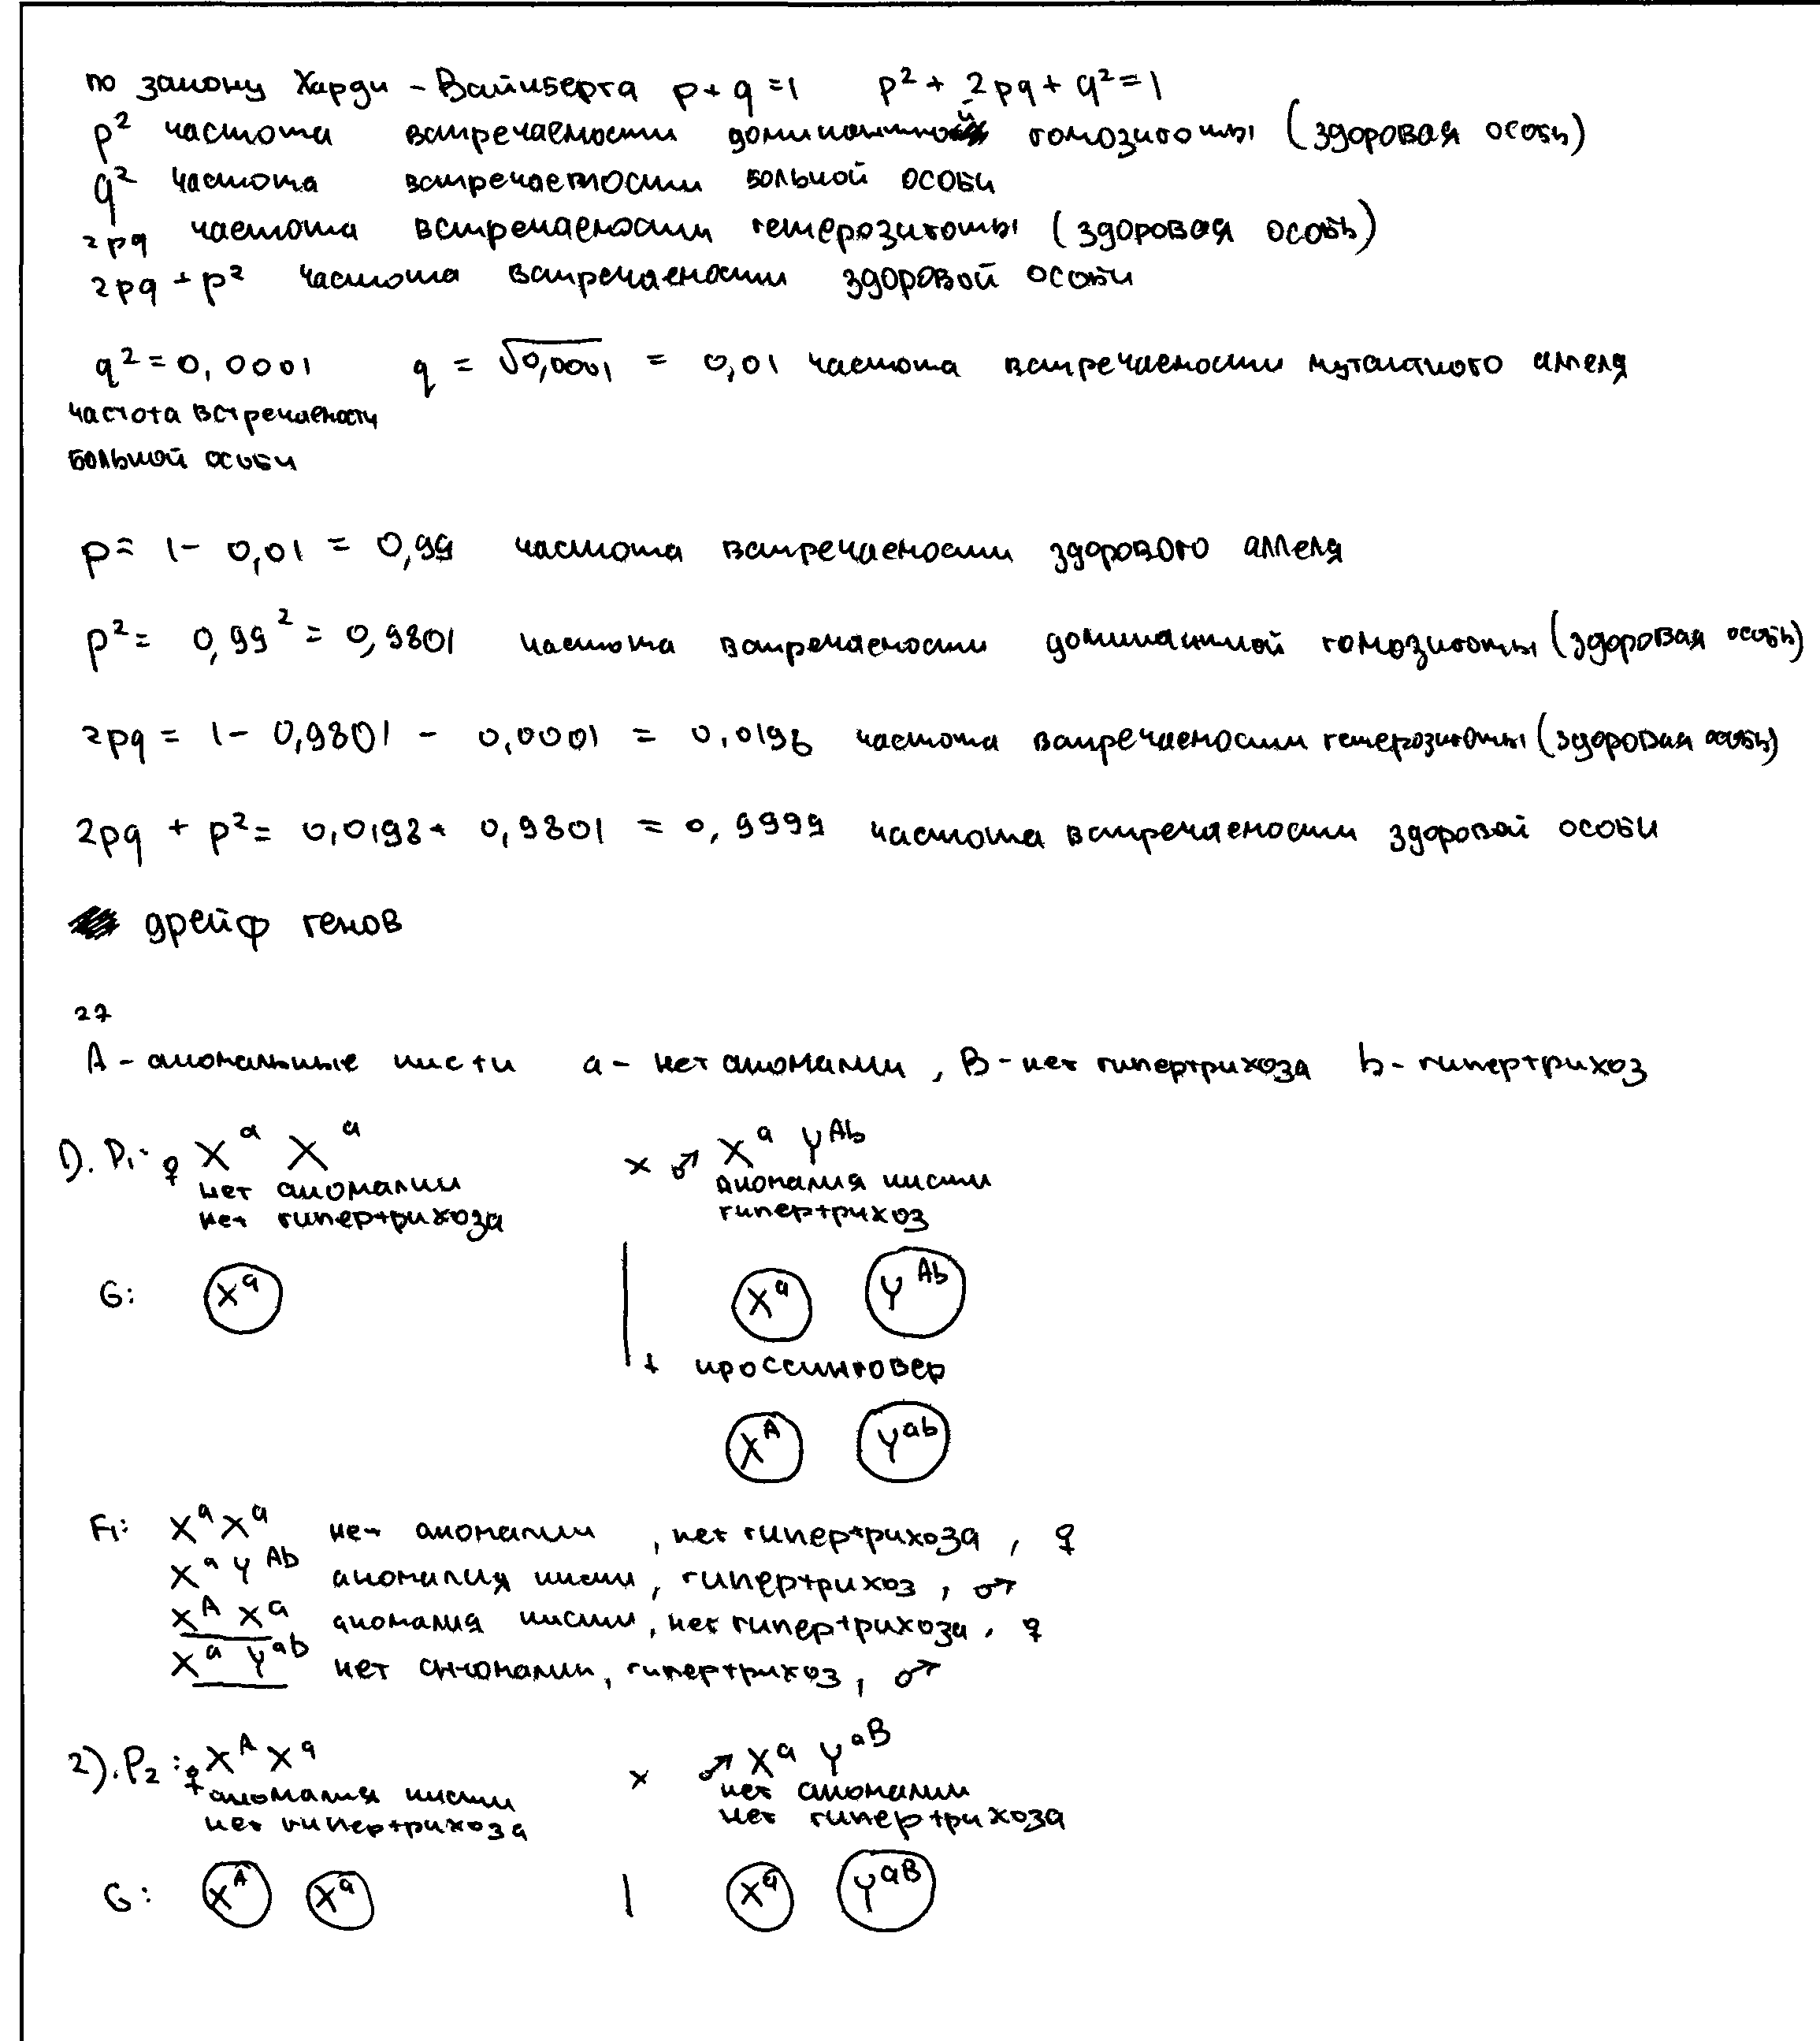 по закону Харди - Вайнберга p + q = 1 p² + 2pq + q² = 1
p² частота встречаемости доминантной гомозиготы (здоровая особь)
q² частота встречаемости больной особи
2pq частота встречаемости гетерозиготы (здоровая особь)
2pq + p² частота встречаемости здоровой особи
q² = 0,0001 q = √0,0001 = 0,01 частота встречаемости мутантного аллеля
частота встречаемости
больной особи
p = 1 - 0,01 = 0,99 частота встречаемости здорового аллеля
p² = 0,99² = 0,9801 частота встречаемости доминантной гомозиготы (здоровая особь)
2pq = 1 - 0,9801 - 0,0001 = 0,0198 частота встречаемости гетерозиготы (здоровая особь)
2pq + p² = 0,0198 + 0,9801 = 0,9999 частота встречаемости здоровой особи
дрейф генов
27
A - аномальные кисти a - нет аномалии, B - нет гипертрихоза b - гипертрихоз
1). P₁: ♀ Xᵃ Xᵃ × ♂ Xᵃ Yᴬᵇ
нет аномалии аномалия кисти
нет гипертрихоза гипертрихоз
G: Xᵃ | Xᵃ Yᴬᵇ
+ кроссинговер
Xᴬ Yᵃᵇ
F₁: XᵃXᵃ нет аномалии, нет гипертрихоза, ♀
XᵃYᴬᵇ аномалия кисти, гипертрихоз, ♂
XᴬXᵃ аномалия кисти, нет гипертрихоза, ♀
XᵃYᵃᵇ нет аномалии, гипертрихоз, ♂
2). P₂: ♀ XᴬXᵃ × ♂ Xᵃ Yᵃᴮ
аномалия кисти нет аномалии
нет гипертрихоза нет гипертрихоза
G: Xᴬ Xᵃ | Xᵃ Yᵃᴮ